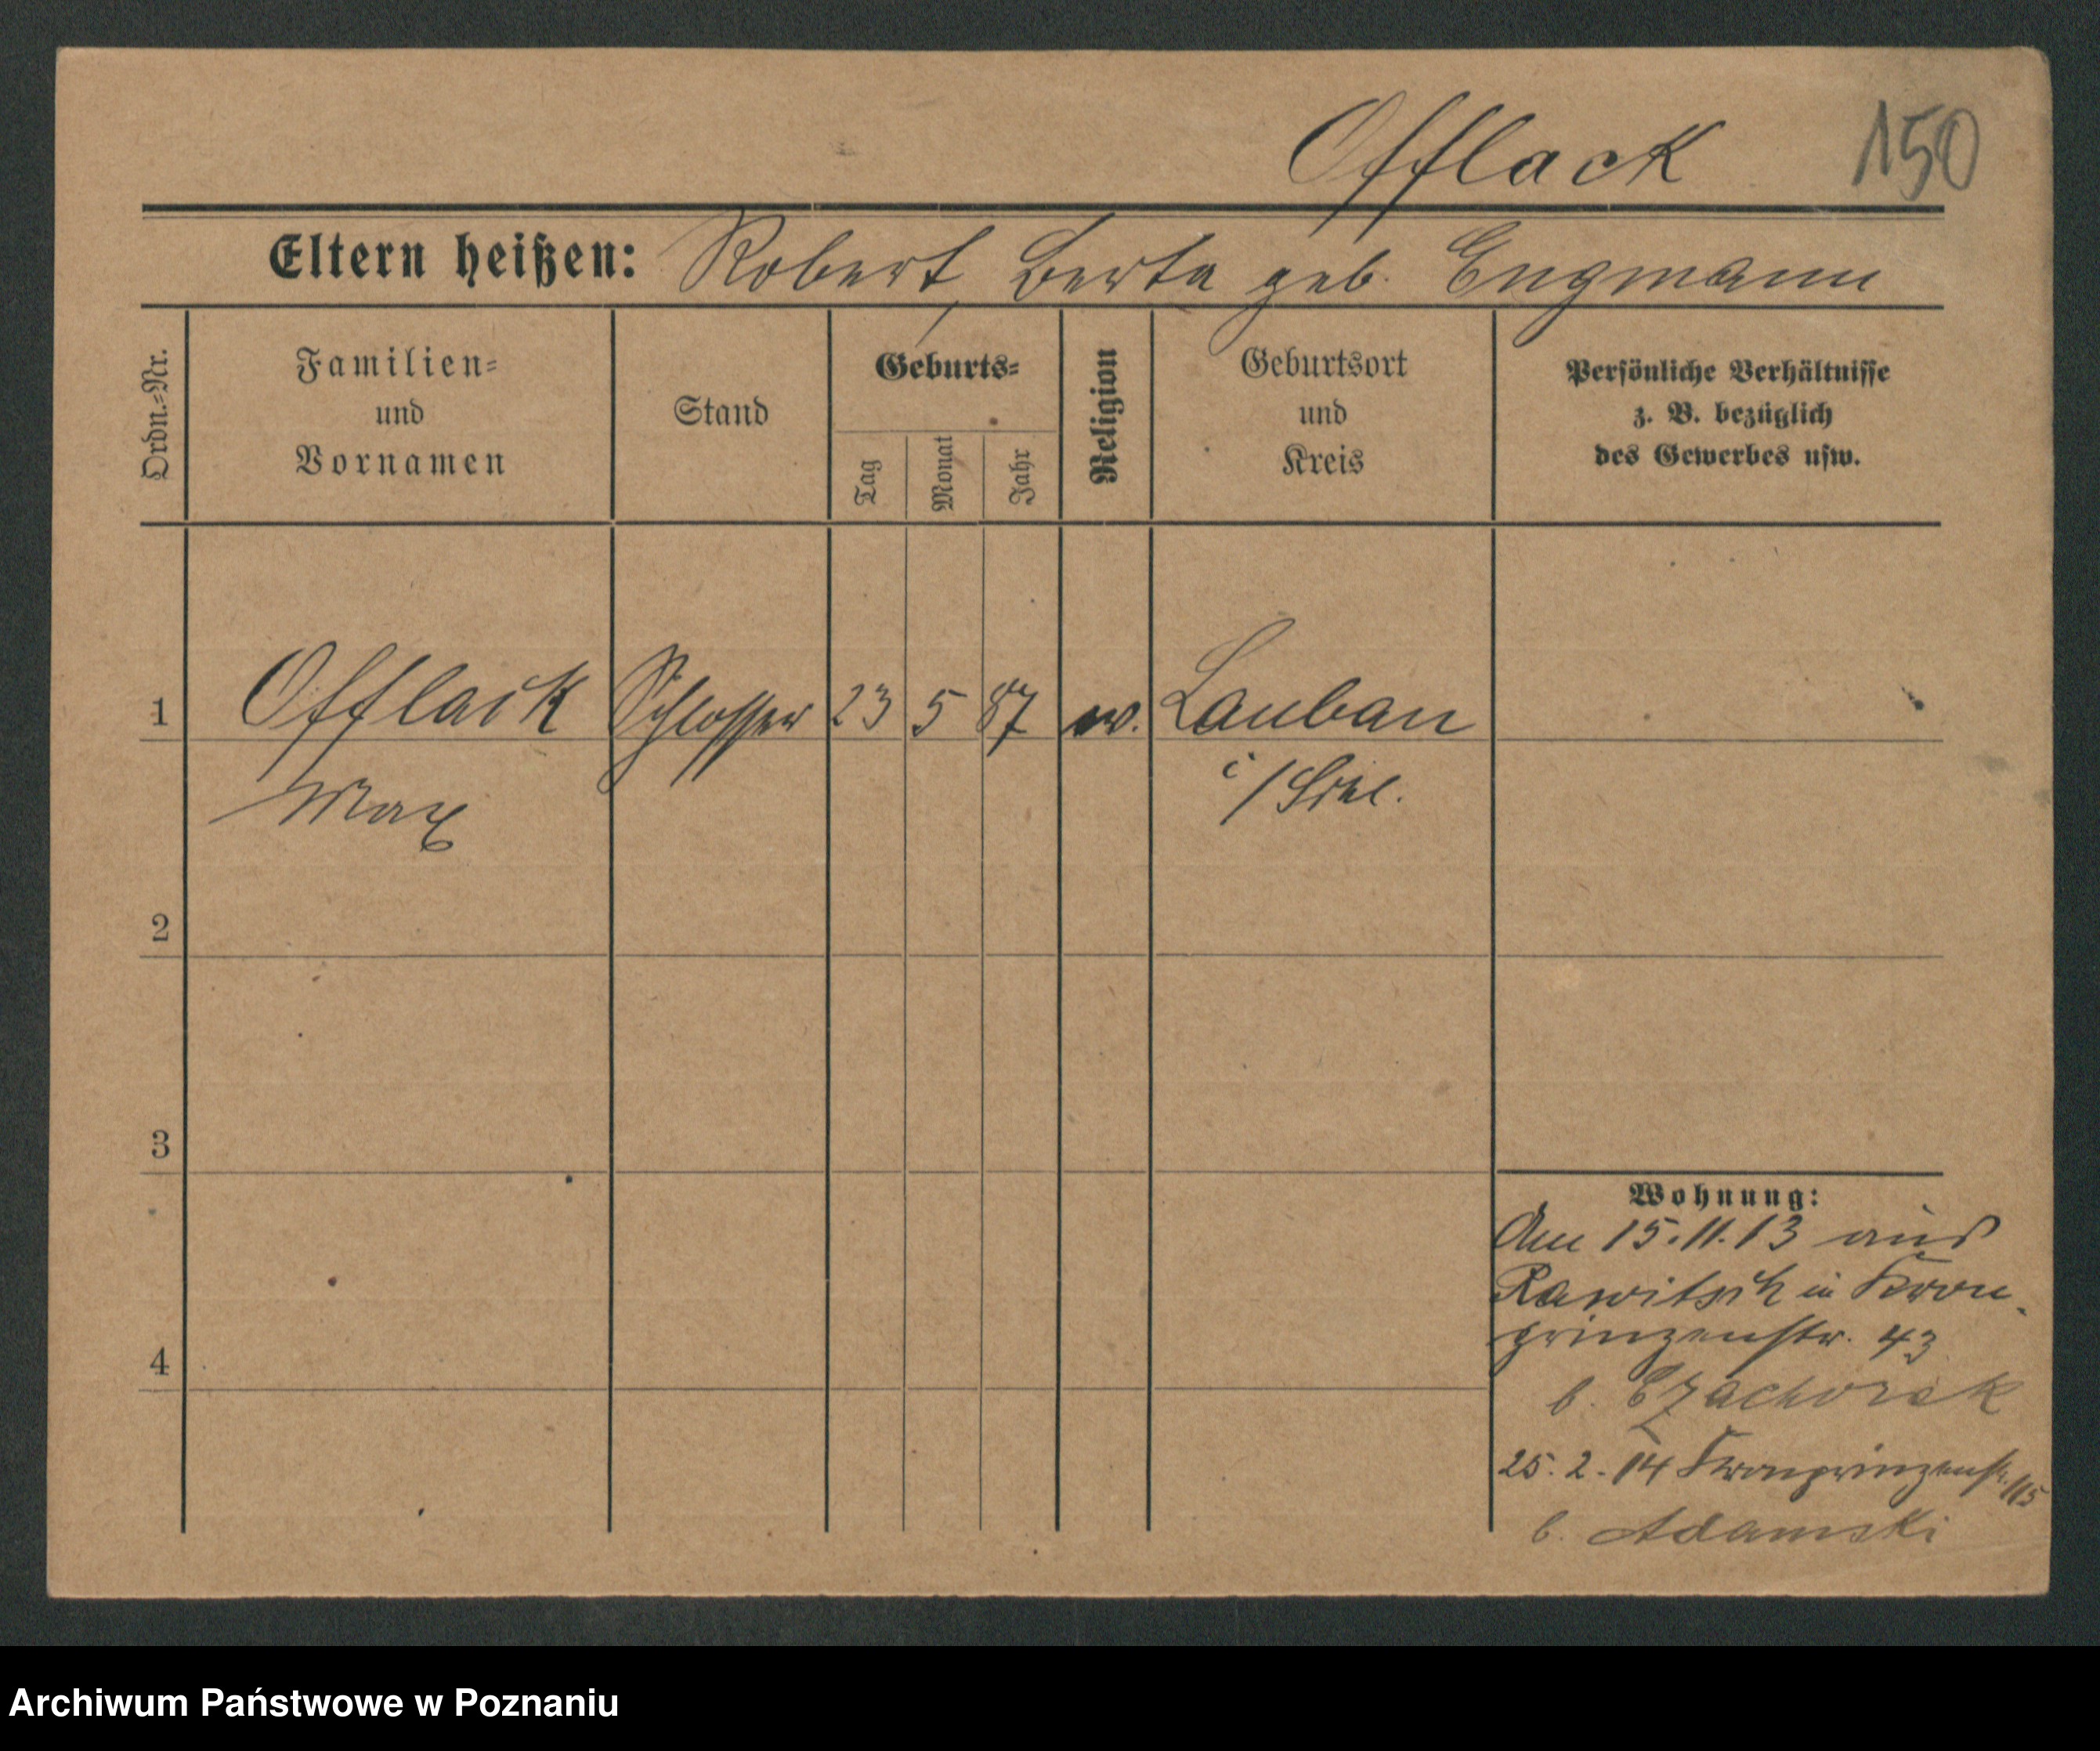 Offlack 150
Eltern heißen: Robert, Berta geb. Engmann
Ordn.-Nr.
Familien-
und
Vornamen
Stand
Geburts-
Tag
Monat
Jahr
Religion
Geburtsort
und
Kreis
Persönliche Verhältnisse
z. B. bezüglich
des Gewerbes usw.
1 Offlack Schlosser 23 5 87 Lauban
Max i/Schl.
2
3
4
Wohnung:
Am 15.11.13 aus
Rawitsch in Kron-
prinzenstr. 43
b. Czachorek
25. 2. 14 Kronprinzenstr. 115
b. Adamski
Archiwum Państwowe w Poznaniu